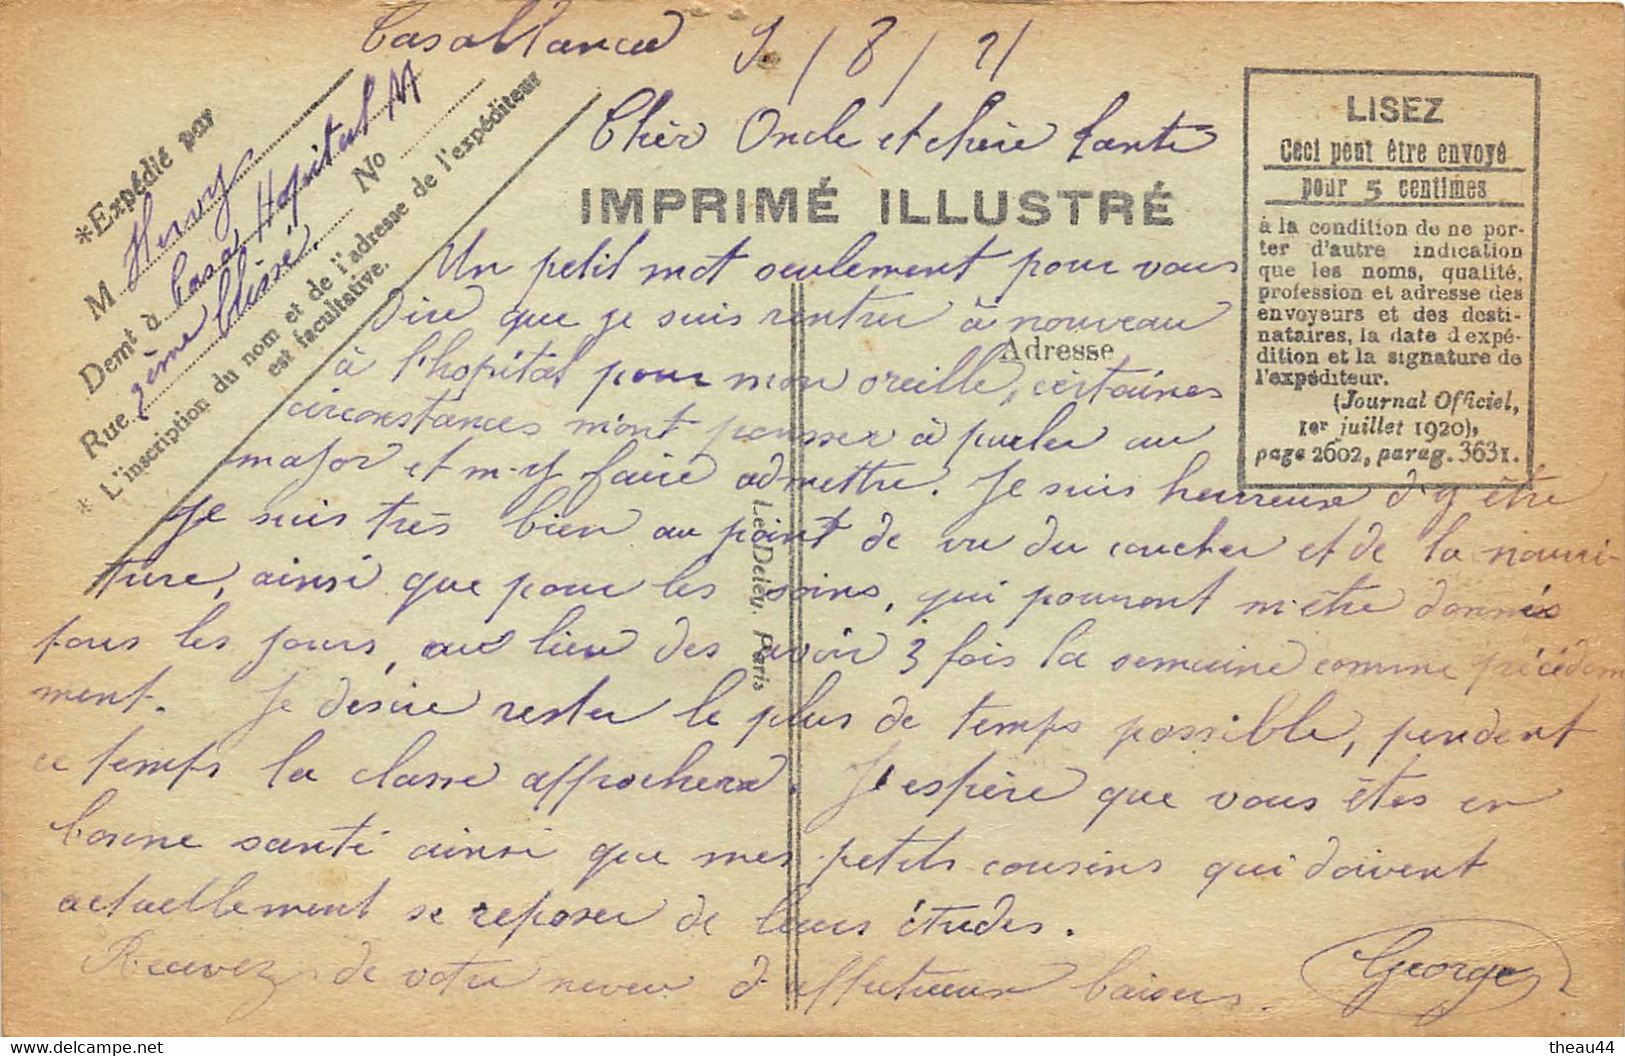 Casablanca 9/8/21
*Expédié par
M Hervy
Demt à Casa Hopital M
Rue 2ème Blessé. No
* L'inscription du nom et de l'adresse de l'expéditeur
est facultative.
Cher Oncle et chère tante
IMPRIMÉ ILLUSTRÉ
Un petit mot seulement pour vous
dire que je suis rentrer à nouveau
Adresse
à l'hopital pour mon oreille, certaines
circonstances m'ont pousser à parler au
major et m-y faire admettre. Je suis heureuse d'y être
Je suis très bien au point de vu du coucher et de la nourri-
ture, ainsi que pour les soins, qui pourront m'être donnés
tous les jours, au lieu des avoir 3 fois la semaine comme précédem
ment. Je désire rester le plus de temps possible, pendent
ce temps la classe approchera. J'espère que vous êtes en
bonne santé ainsi que mes petits cousins qui doivent
actuellement se reposer de leurs études.
Recevez de votre neveu d'affectueux baisers.
George
Le Deley, Paris
LISEZ
Ceci peut être envoyé
pour 5 centimes
à la condition de ne por-
ter d'autre indication
que les noms, qualité,
profession et adresse des
envoyeurs et des desti-
nataires, la date d'expé-
dition et la signature de
l'expéditeur.
(Journal Officiel,
1er juillet 1920),
page 2602, parag. 3631.
https://www.delcampe.net
theau44